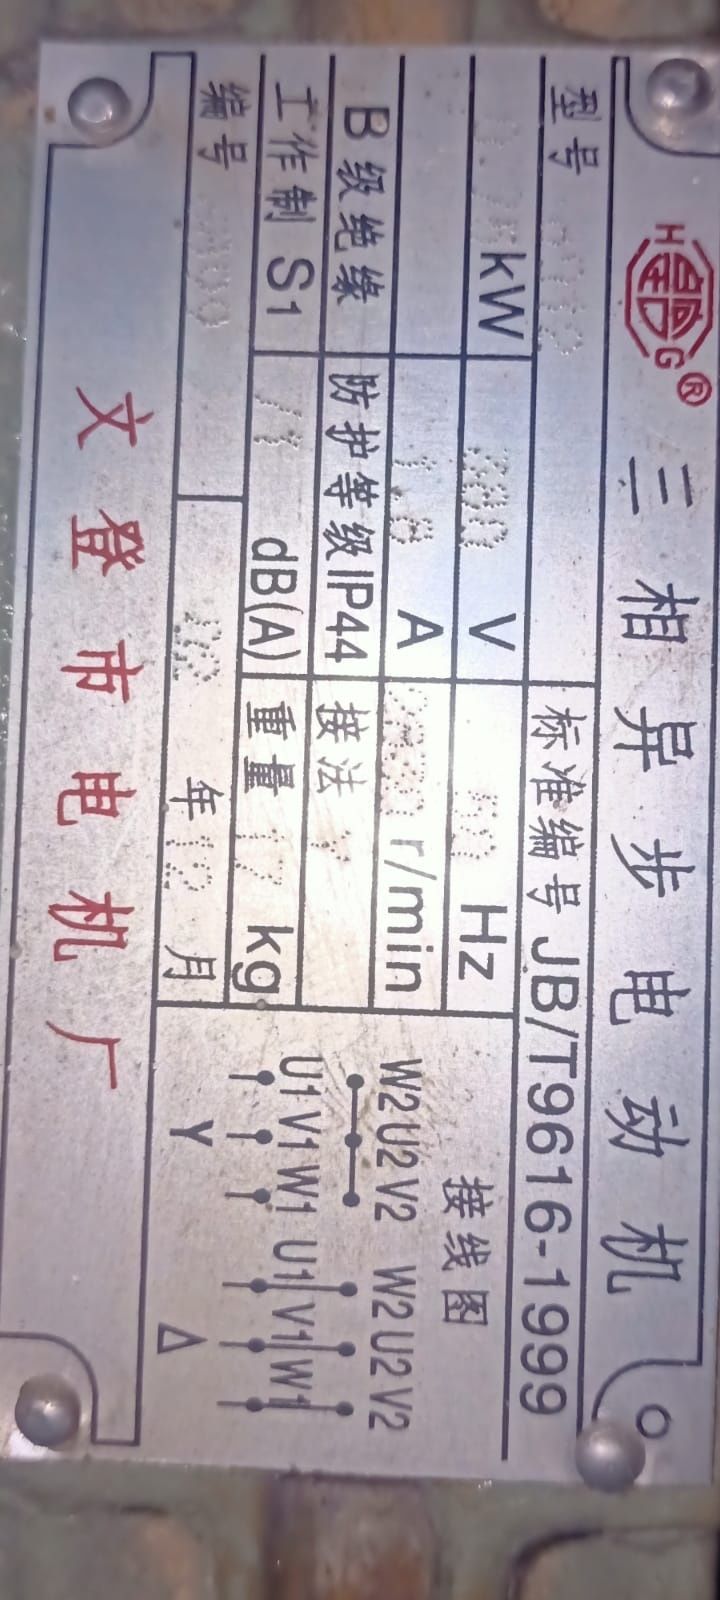 HG® 三相异步电动机
型号 标准编号 JB/T9616-1999
kW 380 V 50 Hz 接线图
1.8 A r/min
B级绝缘 防护等级IP44 接法 Y
W2 U2 V2 W2 U2 V2
工作制 S1 71 dB(A) 重量 17 kg
U1 V1 W1 U1 V1 W1
编号 年 12 月
Y △
文登市电机厂